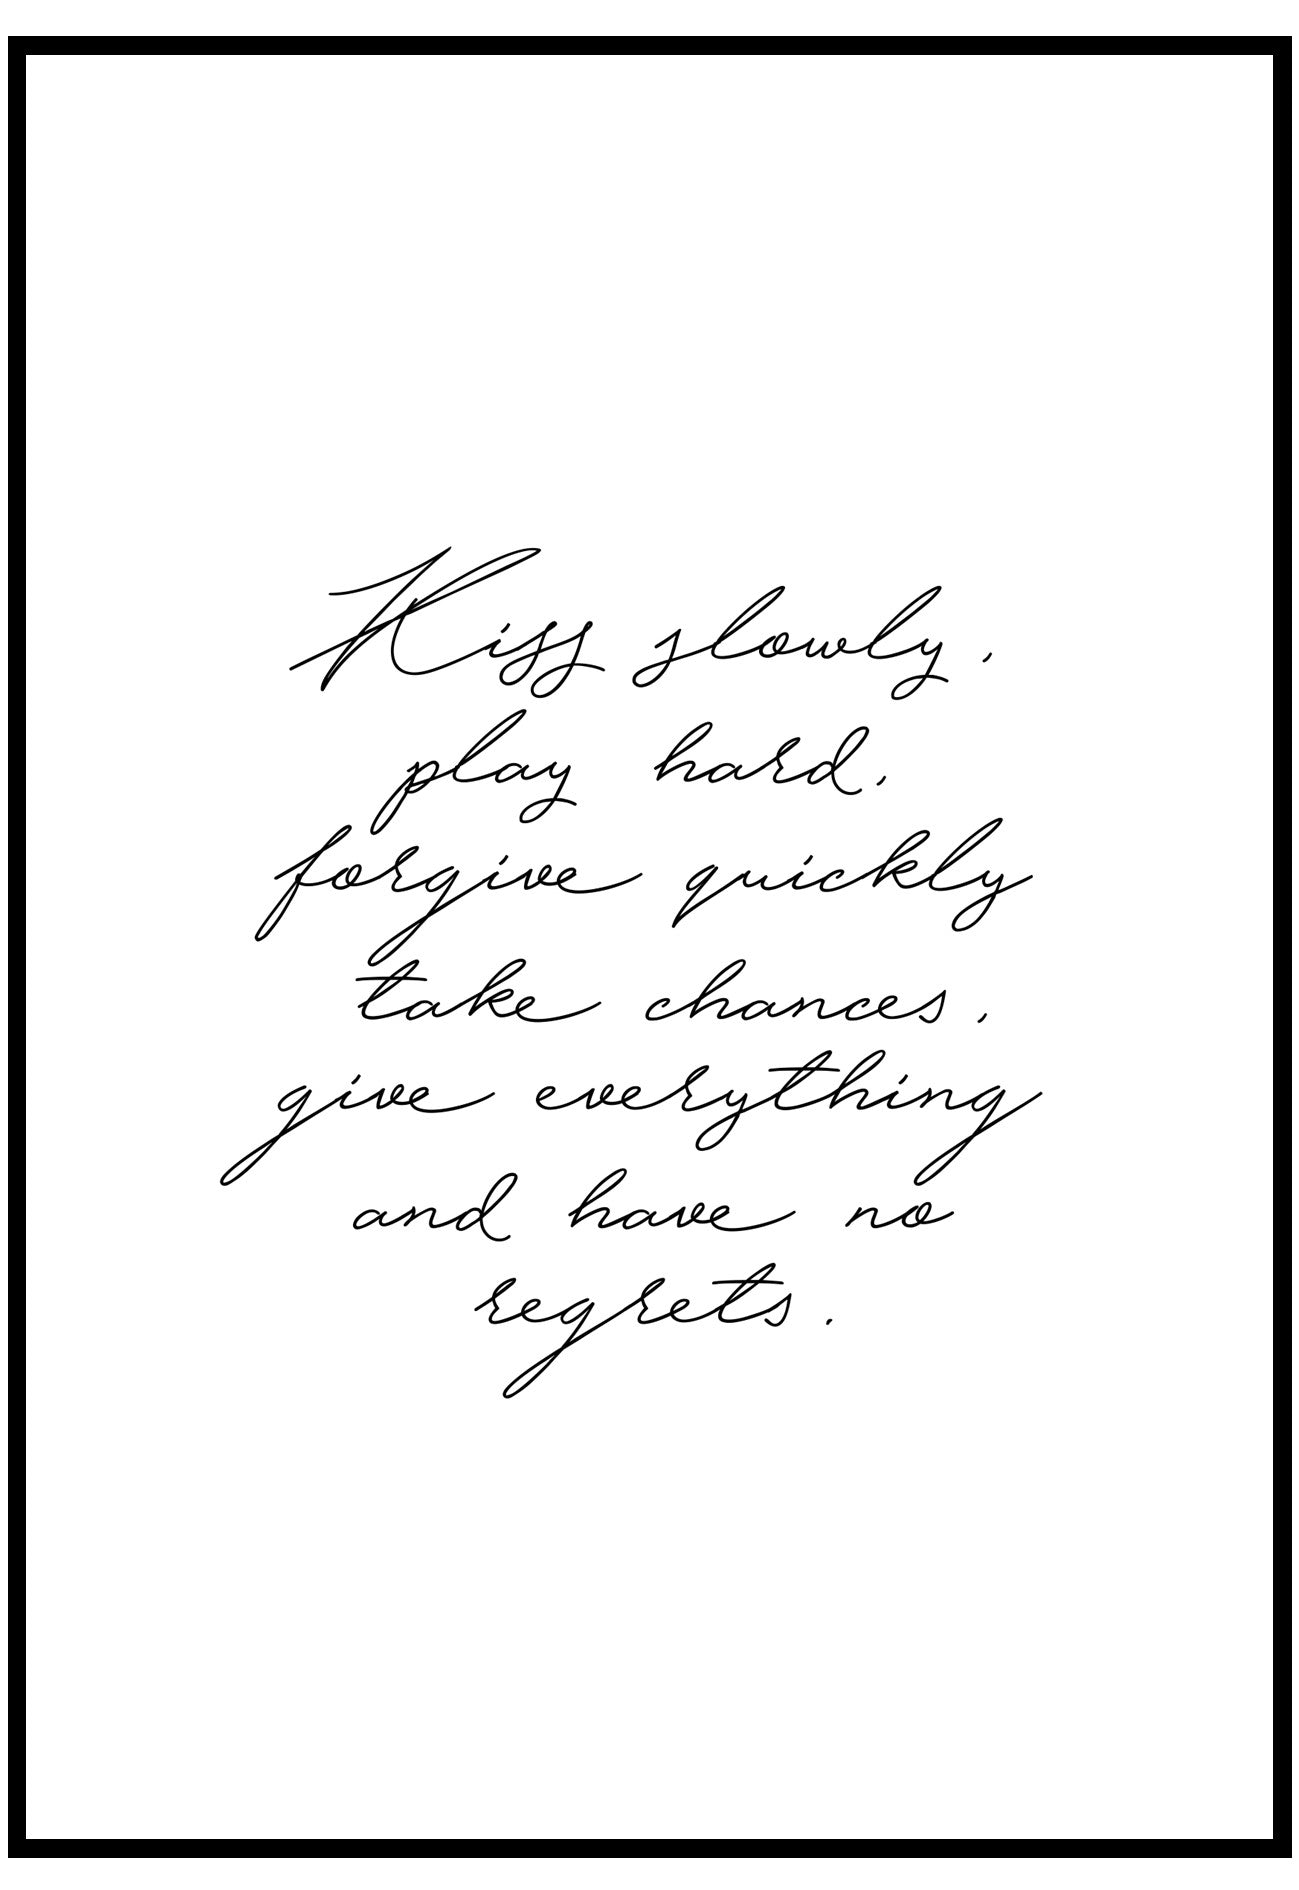 Kiss slowly,
play hard,
forgive quickly
take chances,
give everything
and have no
regrets.